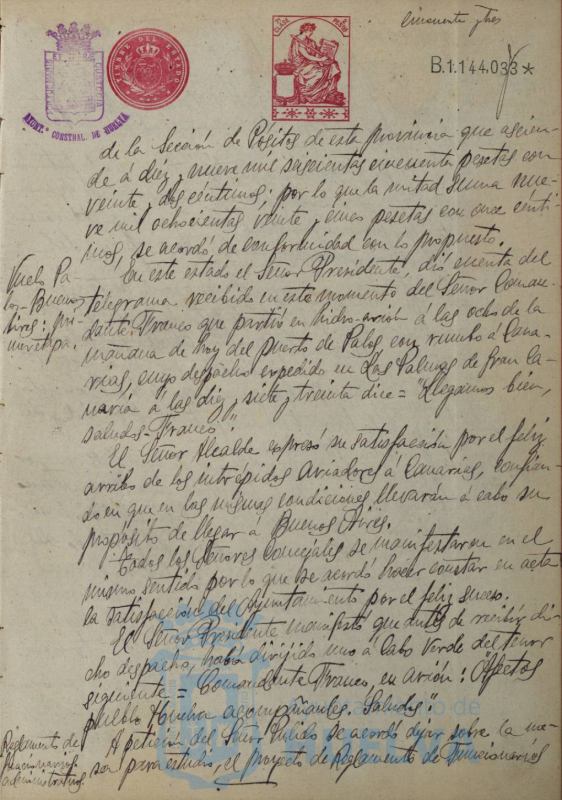 cincuenta y tres
AYUNT.º CONSTNAL. DE HUELVA
TIMBRE DEL ESTADO
B.1.144.033*
de la Sección de Pósitos de esta provincia que ascien-
de á diez y nueve mil seiscientas cincuenta pesetas con
veinte y dos céntimos; por lo que la mitad suma nue-
ve mil ochocientas veinte y cinco pesetas con once cénti-
mos, se acordó de conformidad con lo propuesto.
Vuelo Pa-
los-Buenos
Aires: pri-
mera etapa.
En este estado el Señor Presidente, dió cuenta del
telegrama recibido en este momento del Señor Coman-
dante Franco que partió en hidro-avión á las ocho de la
mañana de hoy del puerto de Palos con rumbo á Cana-
rias, cuyo despacho expedido en Las Palmas de Gran Ca-
naria á las diez y siete y treinta dice = "Llegamos bien,
saludos-Franco".
El Señor Alcalde expresó su satisfacción por el feliz
arribo de los intrépidos aviadores á Canarias, confian-
do en que en las mismas condiciones llevarán á cabo su
propósito de llegar á Buenos Aires.
Todos los Señores Concejales se manifestaron en el
mismo sentido por lo que se acordó hacer constar en acta
la satisfacción del Ayuntamiento por el feliz suceso.
El Señor Presidente manifestó que antes de recibir di-
cho despacho, había dirijido uno á Cabo Verde del tenor
siguiente = Comandante Franco, en avión: Afectos
pueblo Huelva acompañanles. Saludos"
Reglamento de
funcionarios
administrativos.
A petición del Señor se acordó dejar sobre la me-
sa para estudio, el proyecto de Reglamento de Funcionarios
Ayuntamiento de
HUELVA